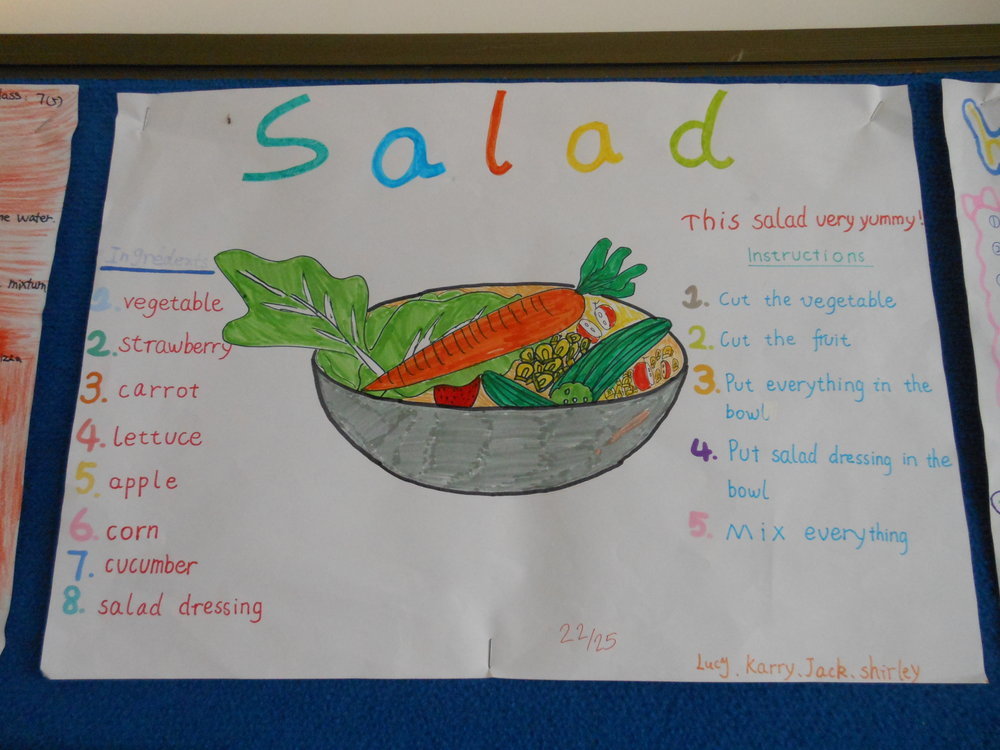 Salad
This salad very yummy!
Ingredents
1. vegetable
2. strawberry
3. carrot
4. lettuce
5. apple
6. corn
7. cucumber
8. salad dressing
Instructions
1. Cut the vegetable
2. Cut the fruit
3. Put everything in the
bowl
4. Put salad dressing in the
bowl
5. Mix everything
22/25
Lucy. Karry. Jack. shirley
7(5)
water.
mixtum